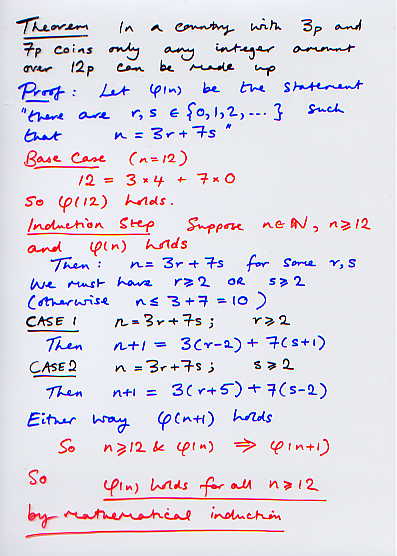 Theorem In a country with 3p and
7p coins only any integer amount
over 12p can be made up
Proof : Let φ(n) be the statement
"there are r, s ∈ {0,1,2,...} such
that n = 3r + 7s"
Base Case (n=12)
12 = 3×4 + 7×0
So φ(12) holds.
Induction Step Suppose n∈ℕ, n≥12
and φ(n) holds
Then : n = 3r + 7s for some r, s
We must have r≥2 OR s≥2
(otherwise n ≤ 3+7 = 10)
CASE 1 n = 3r + 7s ; r≥2
Then n+1 = 3(r-2) + 7(s+1)
CASE 2 n = 3r + 7s ; s≥2
Then n+1 = 3(r+5) + 7(s-2)
Either way φ(n+1) holds
So n≥12 & φ(n) ⇒ φ(n+1)
So φ(n) holds for all n≥12
by mathematical induction